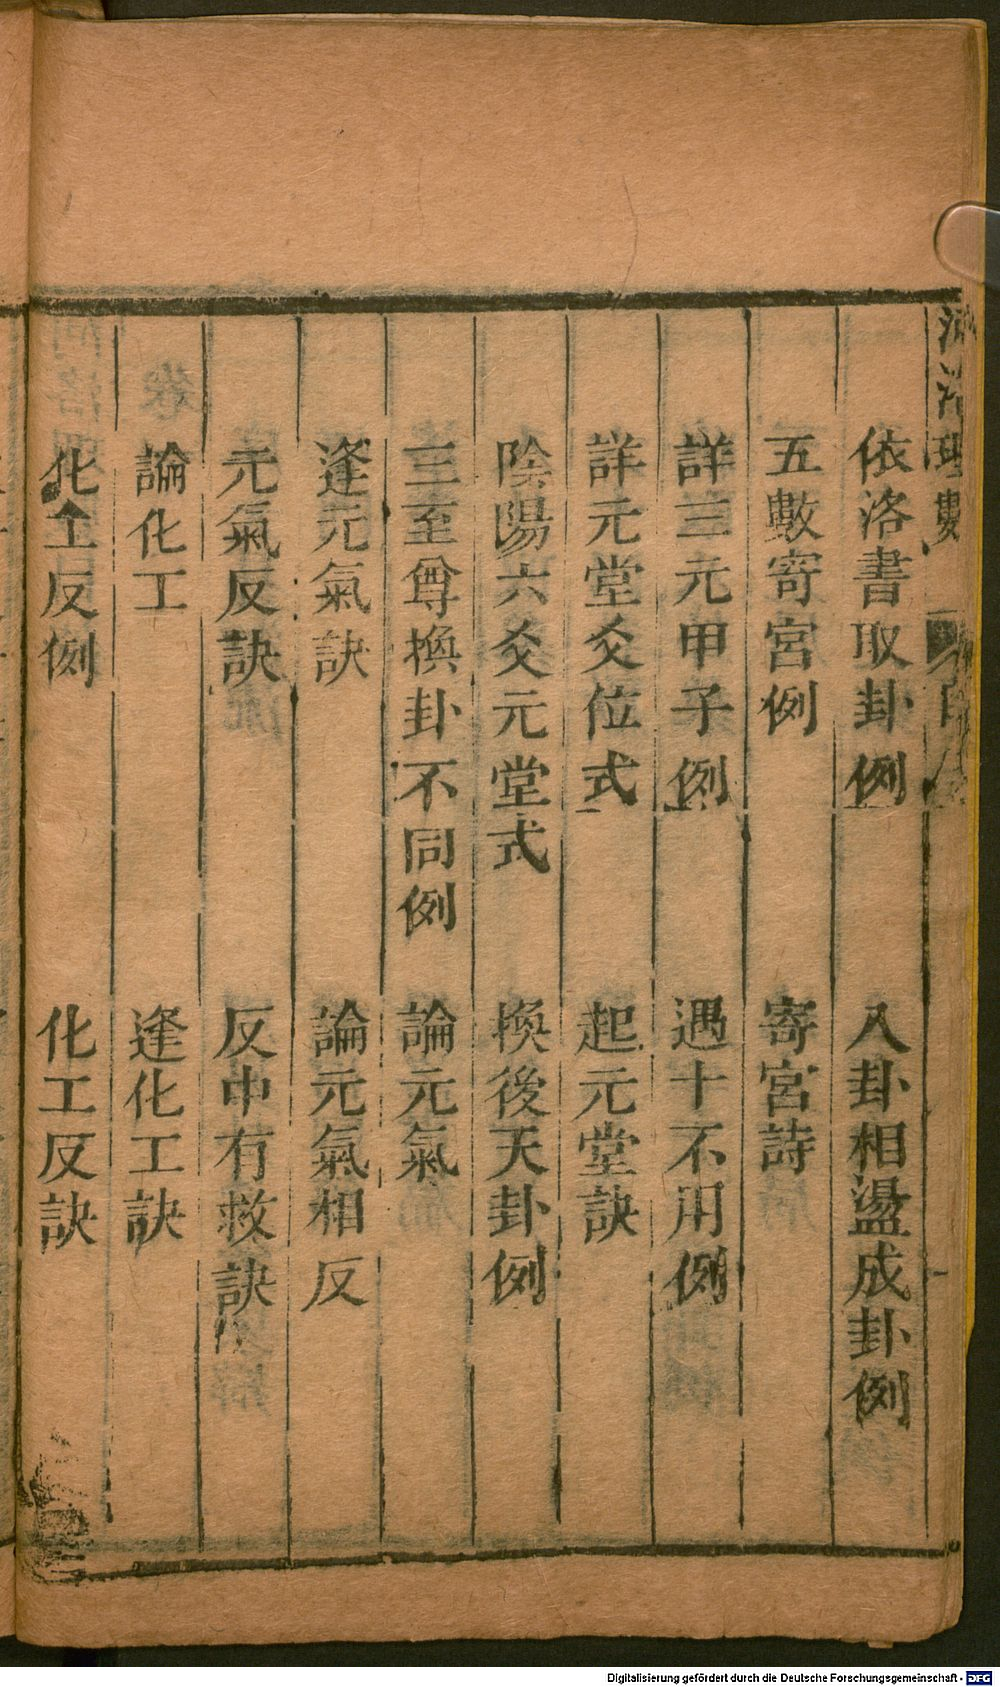 河洛理數
依洛書取卦例　八卦相盪成卦例
五數寄宮例　寄宮詩
詳三元甲子例　遇十不用例
詳元堂爻位式　起元堂訣
陰陽六爻元堂式　換後天卦例
三至尊換卦不同例　論元氣
逢元氣訣　論元氣相反
元氣反訣　反中有救訣
論化工　逢化工訣
化工反例　化工反訣
Digitalisierung gefördert durch die Deutsche Forschungsgemeinschaft - DFG